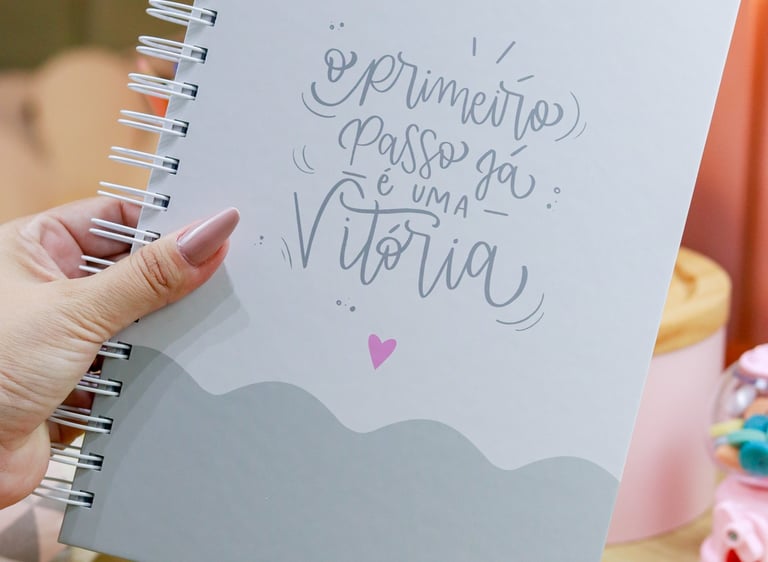 O PRIMEIRO
PASSO JÁ
É UMA
Vitória